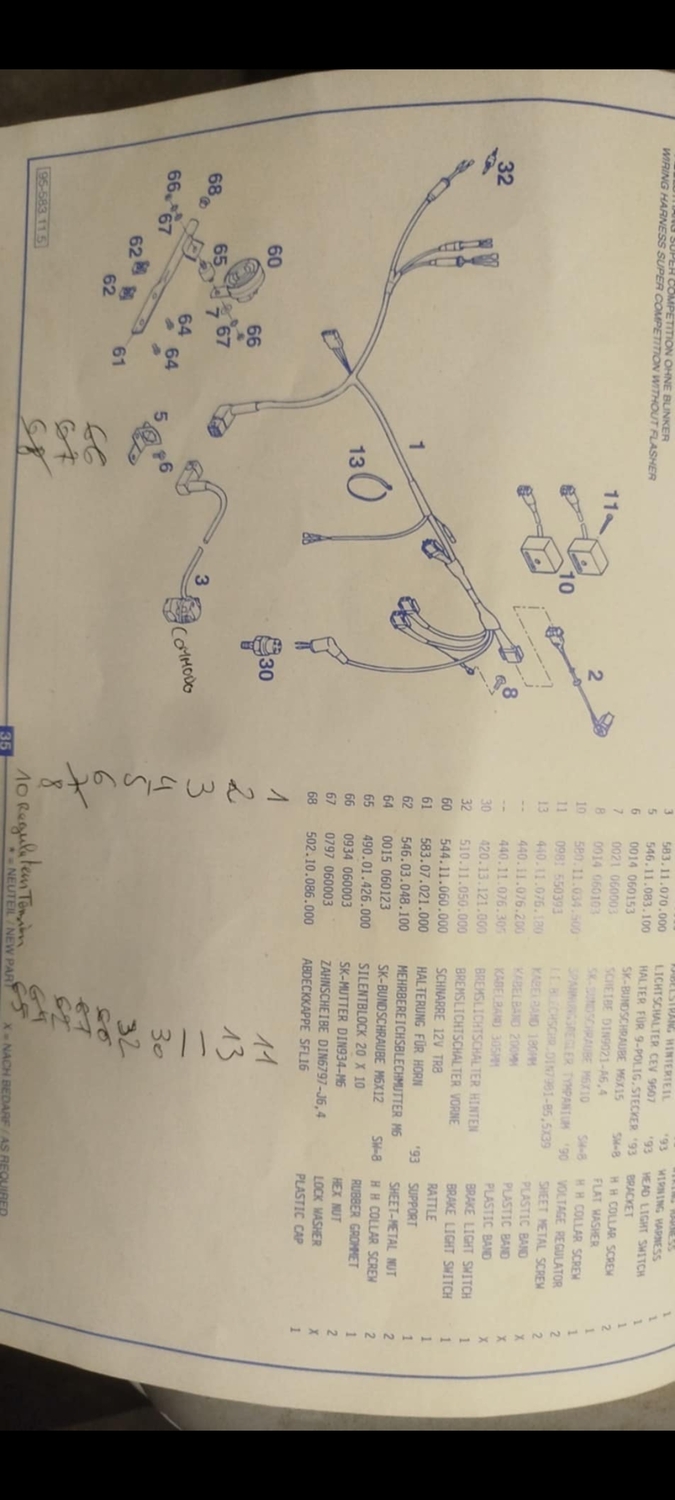 SUPER COMPETITION OHNE BLINKER
WIRING HARNESS SUPER COMPETITION WITHOUT FLASHER
95-583.11.5
32
68
66
67
65
60
62
62
7
67
66
64
64
61
5
6
1
13
11
10
3
2
30
8
COMMODO
66
67
68
3 583.11.070.000 HINTERTEIL '93 WIRING HARNESS 1
5 546.11.083.100 LICHTSCHALTER CEV 9607 '93 HEAD LIGHT SWITCH 1
6 0014 060153 HALTER FÜR 9-POLIG.STECKER '93 BRACKET 1
7 0021 060003 SK-BUNDSCHRAUBE M6X15 SW=8 H H COLLAR SCREW 1
8 0014 060103 SCHEIBE DIN9021-A6,4 FLAT WASHER 2
10 580.11.034.500 SK-BUNDSCHRAUBE M6X10 SW=8 H H COLLAR SCREW 1
11 0981 550393 SPANNUNGSREGLER TYMPANIUM '90 VOLTAGE REGULATOR 1
13 440.11.076.180 DIN7981-B5,5X39 SHEET METAL SCREW 2
-- 440.11.076.200 KABELBAND 180MM PLASTIC BAND 2
-- 440.11.076.305 KABELBAND 200MM PLASTIC BAND X
30 420.13.121.000 KABELBAND 305MM PLASTIC BAND X
32 510.11.050.000 BREMSLICHTSCHALTER HINTEN BRAKE LIGHT SWITCH X
60 544.11.060.000 BREMSLICHTSCHALTER VORNE BRAKE LIGHT SWITCH 1
61 583.07.021.000 SCHNARRE 12V TR8 RATTLE 1
62 546.03.048.100 HALTERUNG FÜR HORN '93 SUPPORT 1
64 0015 060123 MEHRBEREICHSBLECHMUTTER M6 SHEET-METAL NUT 1
65 490.01.426.000 SK-BUNDSCHRAUBE M6X12 SW=8 H H COLLAR SCREW 2
66 0934 060003 SILENTBLOCK 20 X 10 RUBBER GROMMET 2
67 0797 060003 SK-MUTTER DIN934-M6 HEX NUT 1
68 502.10.086.000 ZAHNSCHEIBE DIN6797-J6,4 LOCK WASHER 2
ABDECKKAPPE SFL16 PLASTIC CAP X
1
1
2
3
4
5
6
7
8
10 Regulateur Tension
11
13
—
30
32
35
* = NEUTEIL / NEW PART X = NACH BEDARF / AS REQUIRED